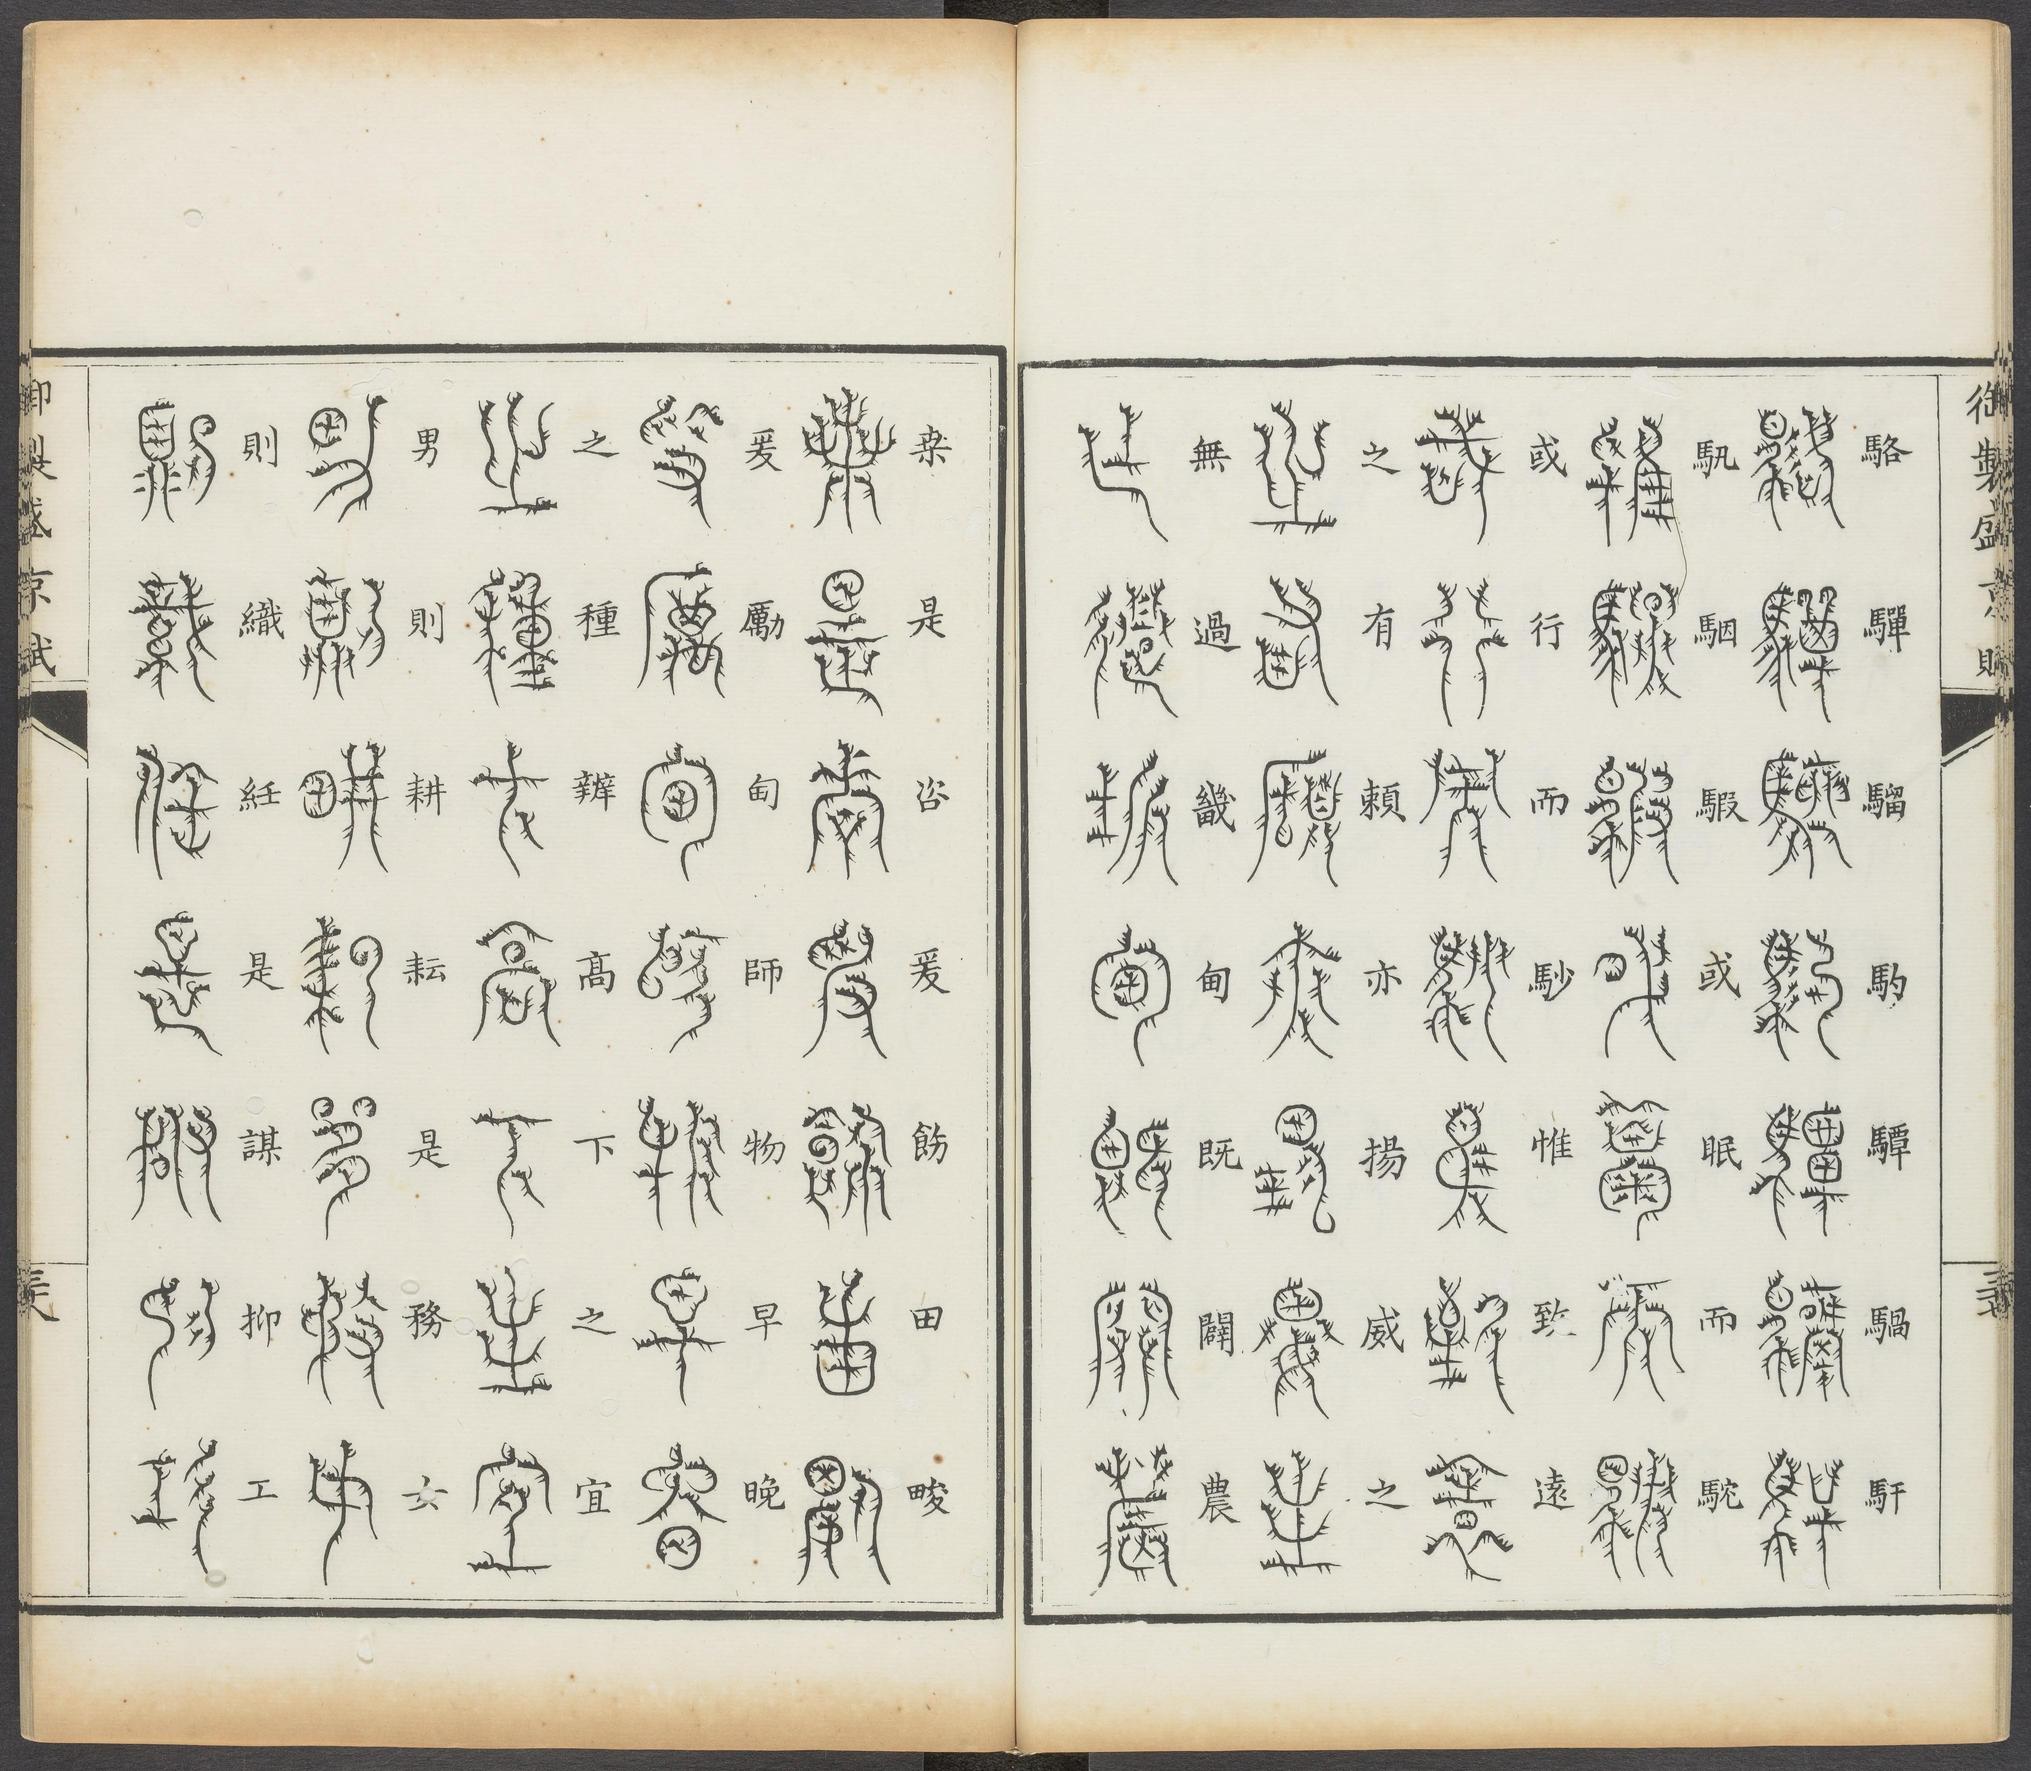 御製盛京賦
駱驒騮馰驔騧馯
馻駰騢或眠而駝
或行而䮂惟致遠
之有頼亦揚威之
無過畿甸既闢農
桒是咨爰飭田畯
爰勵甸師物早晚
之種辧高下之宜
男則耕耘是務女
則織絍是謀抑工
御製盛京賦